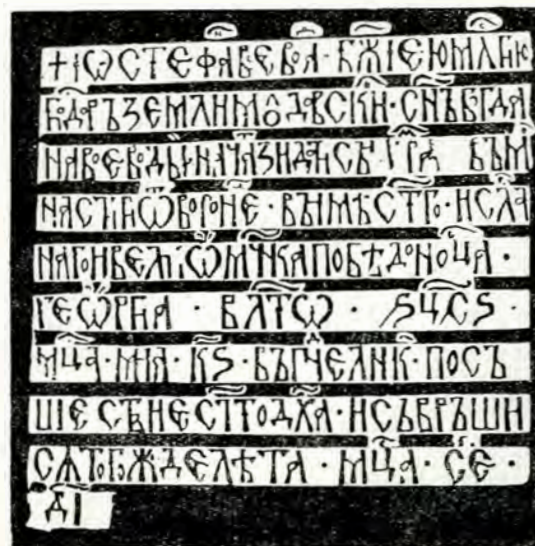 +ІѠ СТЕФА͡Н ВЕВО͡ДА · Б͠ЖІЕЮ МЛ͡СТІЮ
ГО͠ДРЪ ЗЕМЛИ МОⷧДАВСКѠИ · С͠НЬ БОГДА
НА ВОЕВОДЫ · НАЧѦ ЗИДАТИ СЪИ ХРАⷨ ВЪ М
НАСТИРИ Ѿ ВОРОНЕ · ВЪ ИМѢ СТ͠ГО · И СЛА
НАГО И ВЕЛИКОМЧ͠НКА ПОБѢДОНОЦА ·
ГЕѠРГІА · В ЛѢТѠ · ҂ЅЦЧЅ ·
МЦ͠А · МАІА · К͠Ѕ · ВЪ ПОНЕⷣЕЛНИК · ПО СЪ
ШЕСТВІЕ СТ͠ГО ДХ͠А · И СЪВРЪШИ
СѦ ТОГОЖДЕ ЛѢТА · МЦ͠А · СЕⷫ ·
Д͠І